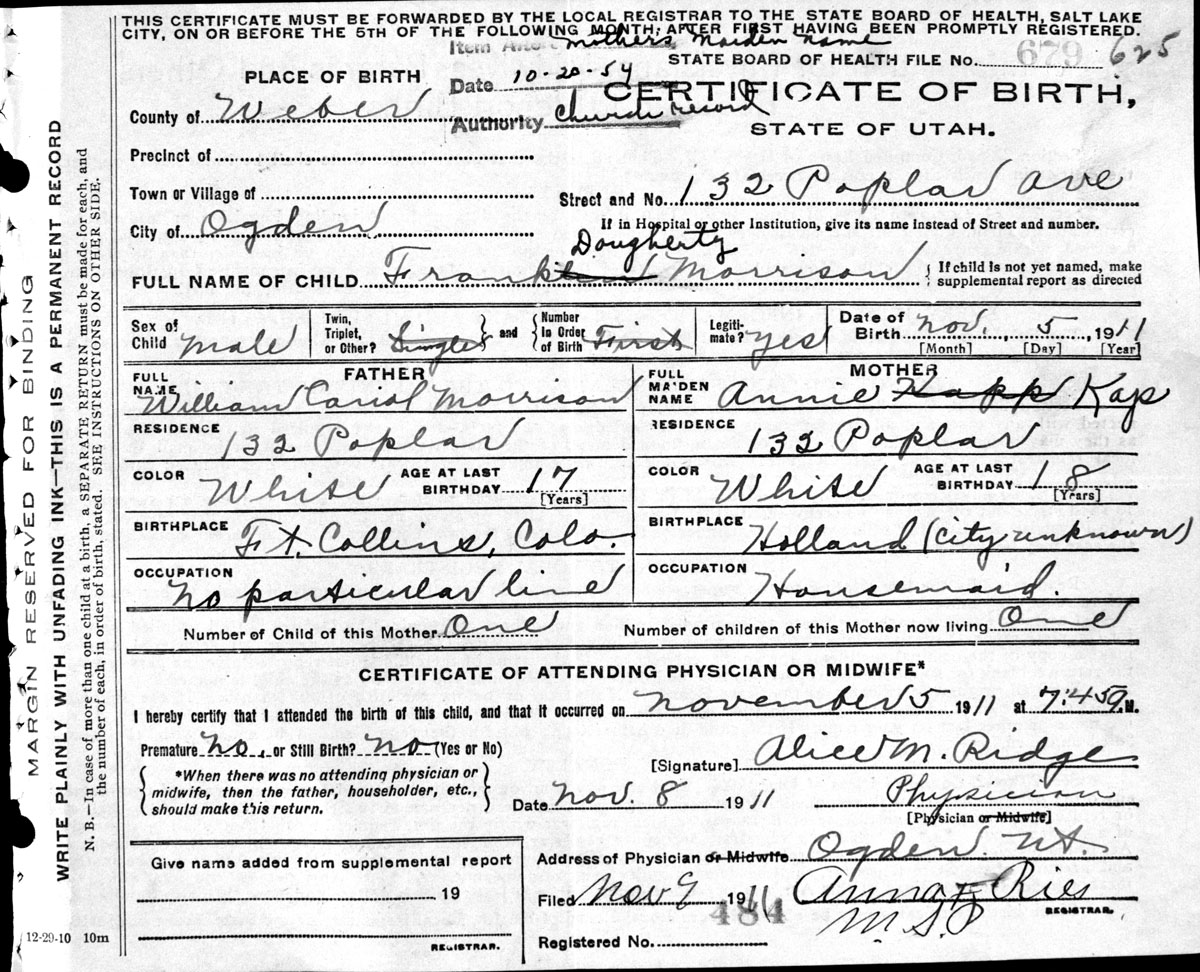 THIS CERTIFICATE MUST BE FORWARDED BY THE LOCAL REGISTRAR TO THE STATE BOARD OF HEALTH, SALT LAKE
CITY, ON OR BEFORE THE 5TH OF THE FOLLOWING MONTH, AFTER FIRST HAVING BEEN PROMPTLY REGISTERED.
Item Mothers Maiden Name
STATE BOARD OF HEALTH FILE No. 679 625
PLACE OF BIRTH
Date 10-20-54
CERTIFICATE OF BIRTH,
County of Weber
Authority Church Record
STATE OF UTAH.
Precinct of
Town or Village of
Street and No. 132 Poplar Ave
City of Ogden
If in Hospital or other Institution, give its name instead of Street and number.
Dougherty
FULL NAME OF CHILD Franklin Morrison
If child is not yet named, make
supplemental report as directed
Sex of Child Male
Twin, Triplet, or Other? Single and Number in Order of Birth First
Legitimate? Yes
Date of Birth Nov. 5 1911
[Month] [Day] [Year]
FATHER
FULL NAME William Carlol Morrison
RESIDENCE 132 Poplar
COLOR White AGE AT LAST BIRTHDAY 17
[Years]
BIRTHPLACE Ft. Collins, Colo.
OCCUPATION No particular line
MOTHER
FULL MAIDEN NAME Annie Kapp Kap
RESIDENCE 132 Poplar
COLOR White AGE AT LAST BIRTHDAY 18
[Years]
BIRTHPLACE Holland (City unknown)
OCCUPATION Housemaid.
Number of Child of this Mother One
Number of children of this Mother now living One
CERTIFICATE OF ATTENDING PHYSICIAN OR MIDWIFE*
I hereby certify that I attended the birth of this child, and that it occurred on November 5 1911 at 7:45 a.M.
Premature No, or Still Birth? No (Yes or No)
[Signature] Alice M. Ridge
*When there was no attending physician or
midwife, then the father, householder, etc.,
should make this return.
Date Nov. 8 1911
Physician
[Physician or Midwife]
Give name added from supplemental report
19
REGISTRAR.
Address of Physician or Midwife Ogden. Ut.
Filed Nov 9 1911 Anna F Ries
484 M.S.P REGISTRAR.
Registered No.
12-29-10 10m
MARGIN RESERVED FOR BINDING
WRITE PLAINLY WITH UNFADING INK—THIS IS A PERMANENT RECORD
N. B.—In case of more than one child at a birth, a SEPARATE RETURN must be made for each, and
the number of each, in order of birth, stated. SEE INSTRUCTIONS ON OTHER SIDE.